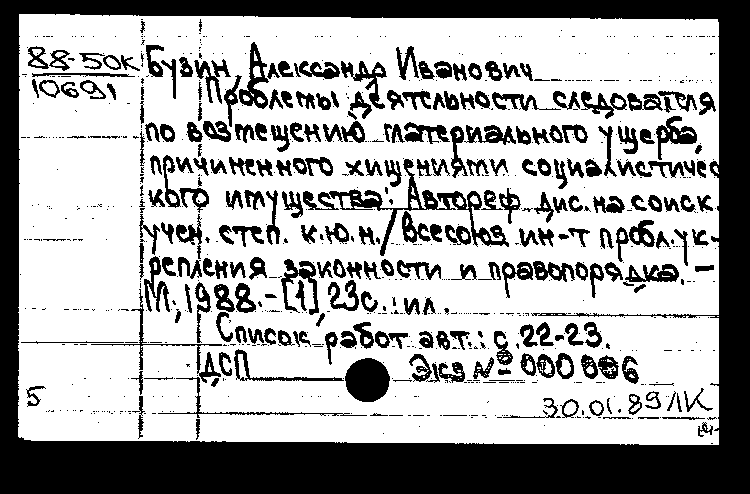 88-50к Бузин, Александр Иванович
10691 Проблемы деятельности следователя
по возмещению материального ущерба,
причиненного хищениями социалистичес
кого имущества: Автореф. дис. на соиск.
учен. степ. к.ю.н./ Всесоюз. ин-т пробл. ук-
репления законности и правопорядка. –
М., 1988.-[1], 23с.:ил.
Список работ авт.: с.22-23.
ДСП Экз № 000006
5 30.01.89 ЛК